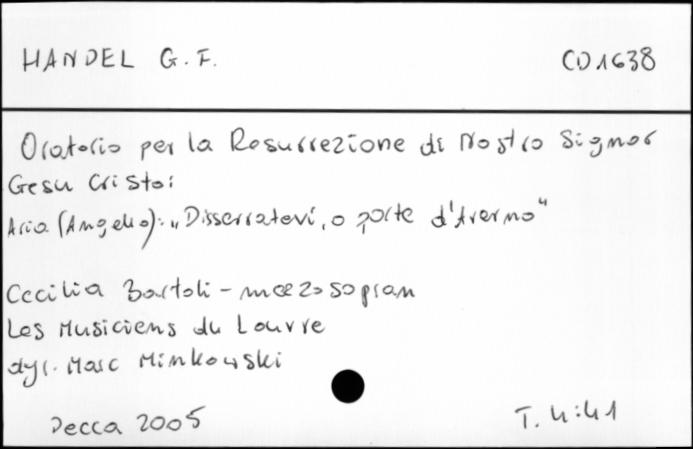 HANDEL G. F. CD1638
Oratorio per la Resurrezione di Nostro Signor
Gesu Cristo:
Aria (Angelo): „Disserratevi, o porte d'Averno"
Cecilia Bartoli - mezzosopran
Les Musiciens du Louvre
dyr. Marc Minkowski
Decca 2005 T. 4:41